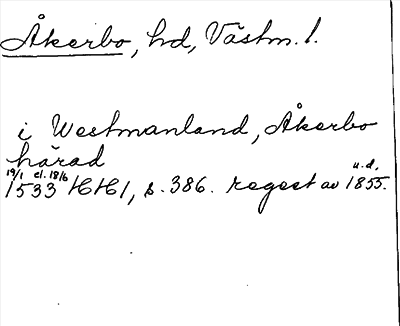 Åkerbo, hd, Västm. l.
i Westmanland, Åkerbo
härad
19/1 el. 18/6 u.d.
1533 HH1, s. 386. regest av 1855.